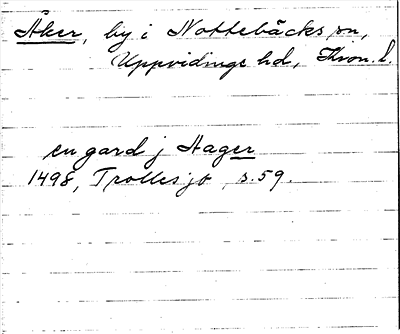 Åker, by i Nottebäcks sn,
Uppvidinge hd, Kron. l.
en gard j Aager
1498, Trollesjö, s. 59.